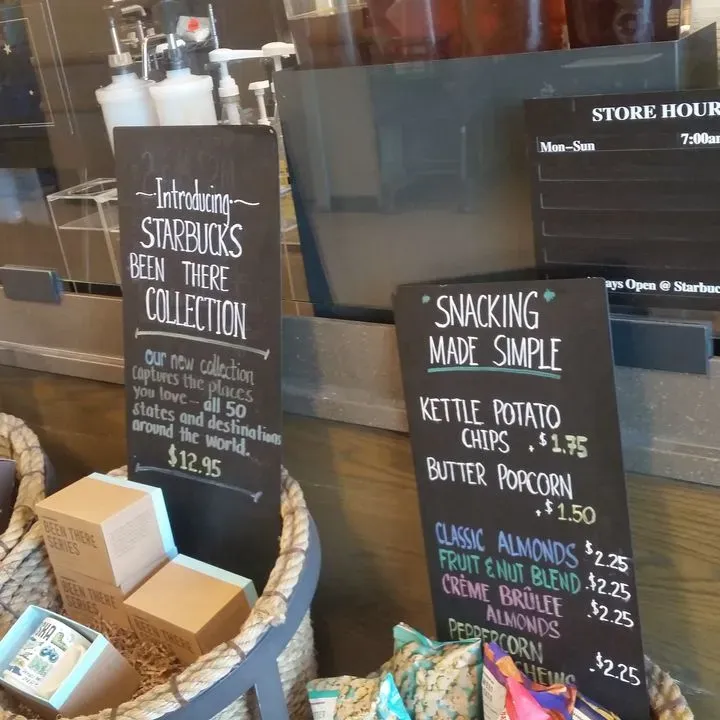 ~Introducing~
STARBUCKS
BEEN THERE
COLLECTION
our new collection
captures the places
you love - all 50
states and destinations
around the world.
$12.95
SNACKING
MADE SIMPLE
KETTLE POTATO
CHIPS .$1.75
BUTTER POPCORN
.$1.50
CLASSIC ALMONDS $2.25
FRUIT & NUT BLEND .$2.25
CRÈME BRÛLEE $2.25
ALMONDS
PEPPERCORN
.$2.25
STORE HOUR
Mon-Sun 7:00a
ays Open @ Starbuc
BEEN THERE
SERIES
BEEN THERE
SERIES
BEEN THERE
SERIES